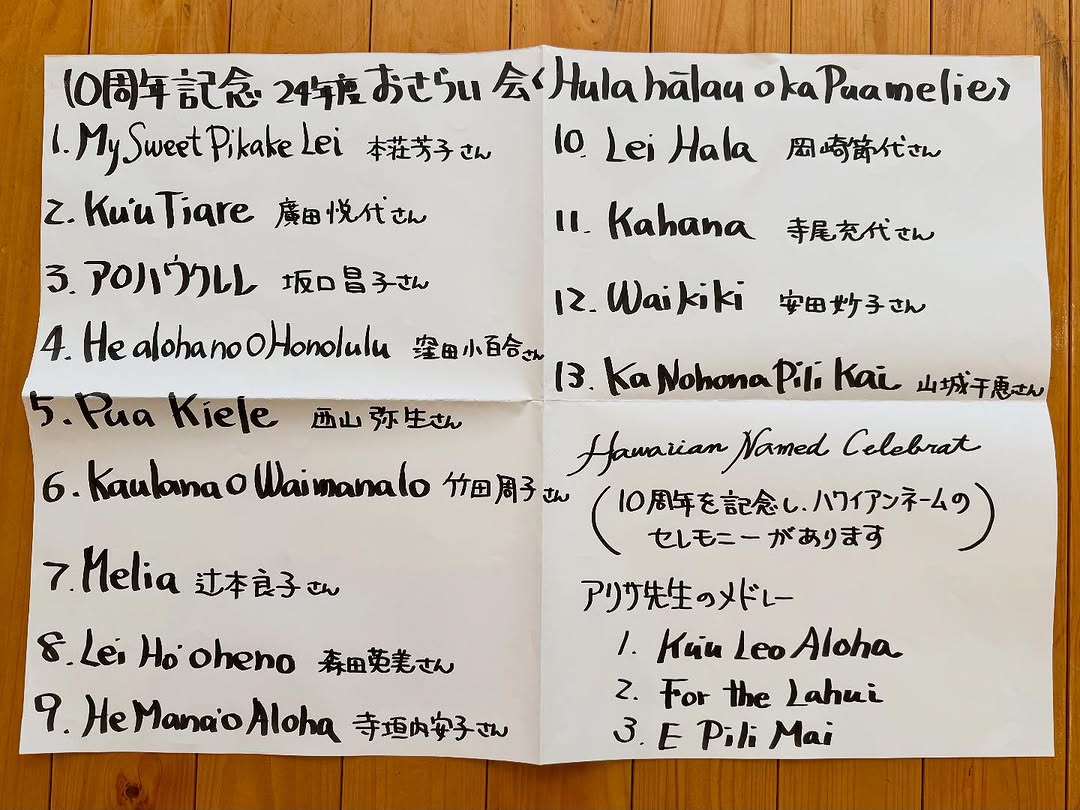 10周年記念 24年度 おさらい会〈Hula hālau o ka Pua melie〉
1. My Sweet Pikake Lei 本荘芳子さん
2. Ku'u Tiare 廣田悦代さん
3. アロハウクレレ 坂口昌子さん
4. He aloha no O Honolulu 窪田小百合さん
5. Pua Kiele 西山弥生さん
6. Kaulana O Waimanalo 竹田周子さん
7. Melia 辻本良子さん
8. Lei Ho'oheno 森田英美さん
9. He Mana'o Aloha 寺垣内安子さん
10. Lei Hala 岡崎節代さん
11. Kahana 寺尾充代さん
12. Waikiki 安田妙子さん
13. Ka Nohona Pili Kai 山城千恵さん
Hawaiian Named Celebrat
(10周年を記念し、ハワイアンネームの
セレモニーがあります)
アリサ先生のメドレー
1. Ku'u Leo Aloha
2. For the Lahui
3. E Pili Mai